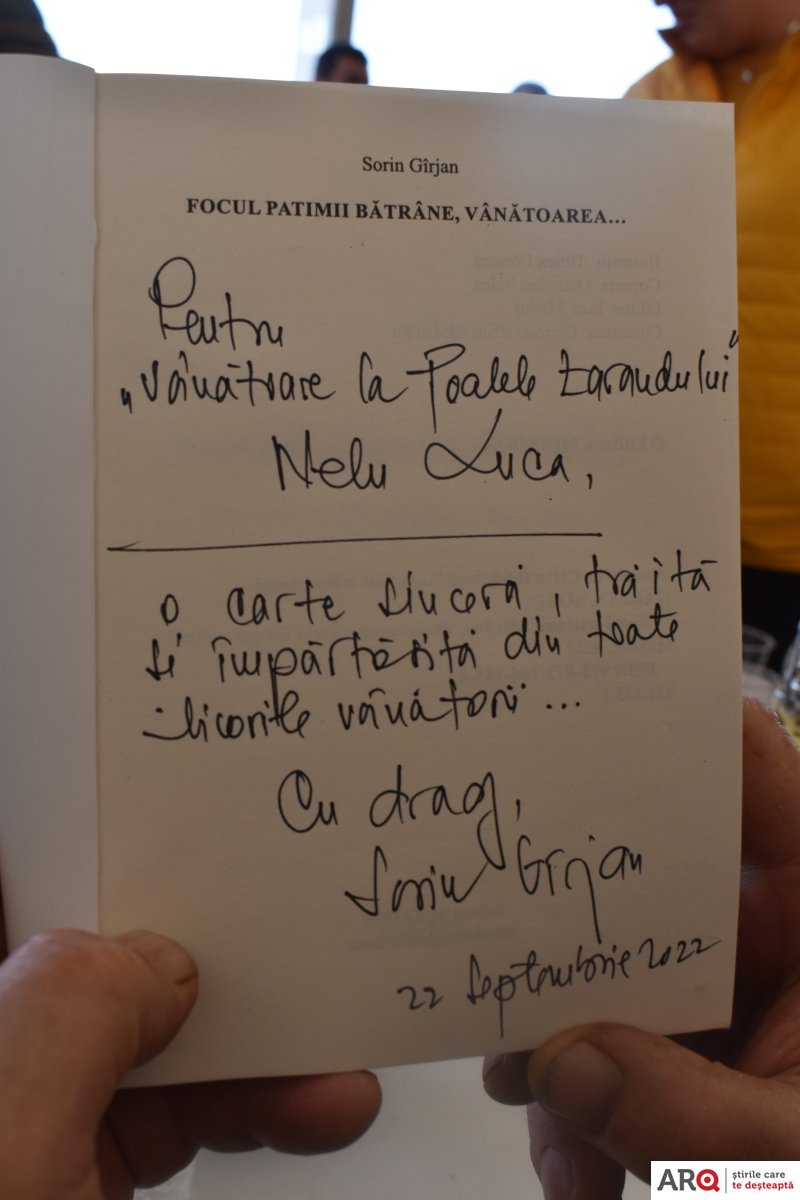 Sorin Gîrjan
FOCUL PATIMII BĂTRÂNE, VÂNĂTOAREA...
Pentru
„Vânătoare la Poalele Zarandului”
Nelu Luca,
O carte sinceră, trăită
și împărtășită din toate
licorile vânătorii...
Cu drag,
Sorin Gîrjan
22 Septembrie 2022
ARQ știrile care
te deșteaptă